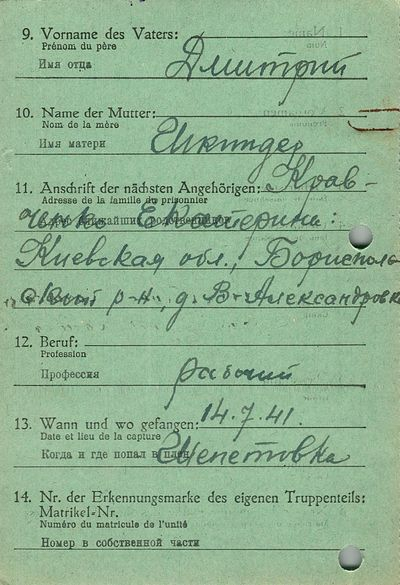 9. Vorname des Vaters:
Prénom du père
Имя отца
Дмитрий
10. Name der Mutter:
Nom de la mère
Имя матери
11. Anschrift der nächsten Angehörigen: Крав-
Adresse de la famille du prisonnier
Екатерина:
Киевская обл., Борисполь-
ский р-н, д. В-Александровка
12. Beruf:
Profession
Профессия
рабочий
13. Wann und wo gefangen: 14.7.41.
Date et lieu de la capture
Когда и где попал в плен
Шепетовка
14. Nr. der Erkennungsmarke des eigenen Truppenteils:
Matrikel-Nr.
Numéro du matricule de l'unité
Номер в собственной части